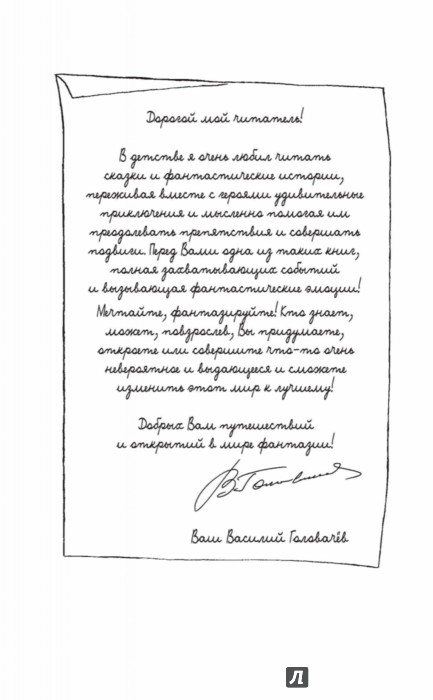 Дорогой мой читатель!
В детстве я очень любил читать
сказки и фантастические истории,
переживая вместе с героями удивительные
приключения и мысленно помогая им
преодолевать препятствия и совершать
подвиги. Перед Вами одна из таких книг,
полная захватывающих событий
и вызывающая фантастические эмоции!
Мечтайте, фантазируйте! Кто знает,
может, повзрослев, Вы придумаете,
откроете или совершите что-то очень
невероятное и выдающееся и сможете
изменить этот мир к лучшему!
Добрых Вам путешествий
и открытий в мире фантазии!
В Головачев
Ваш Василий Головачёв
Л